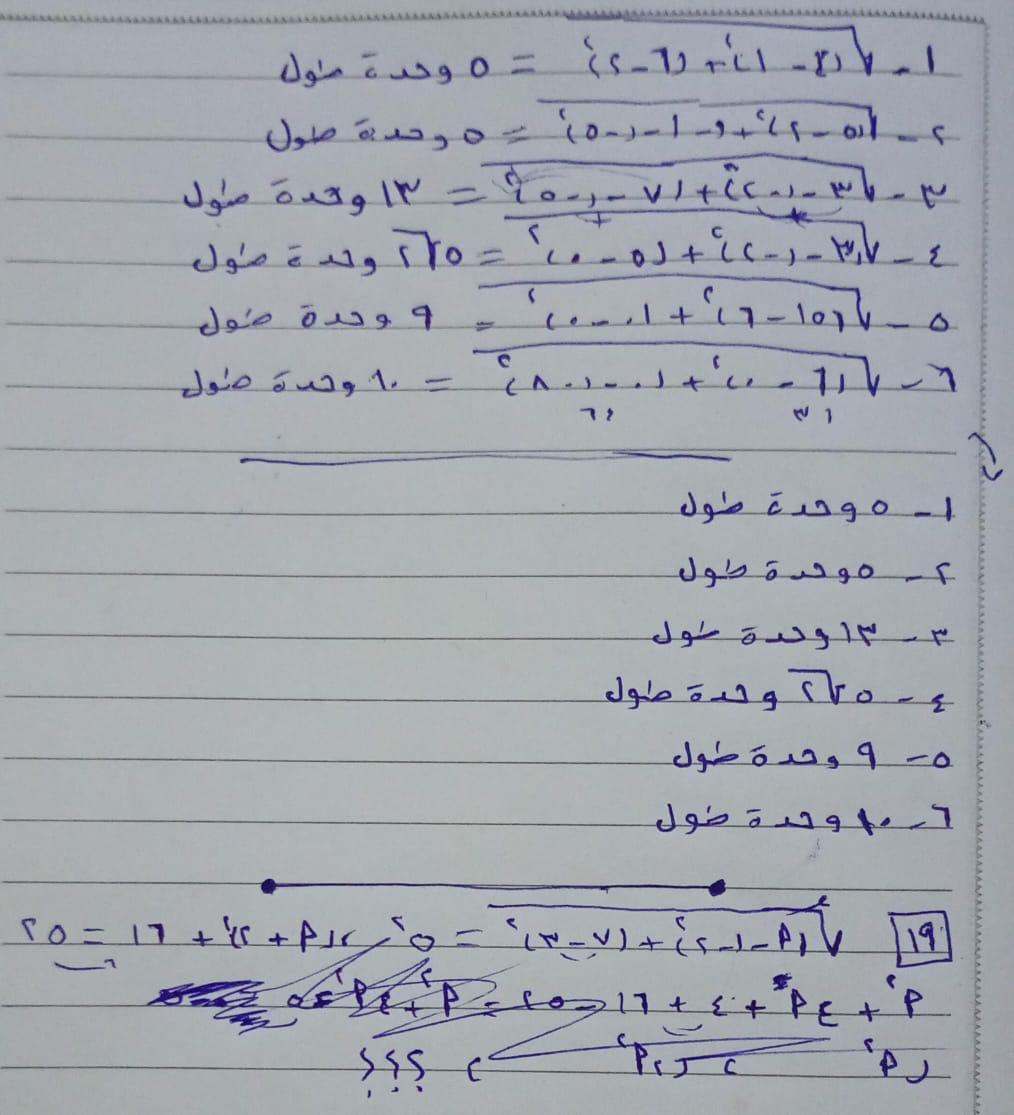 ١- √(٤-١)²+(٦-٢)² = ٥ وحدة طول
٢- √(٥-٢)²+(-١-(-٥))² = ٥ وحدة طول
٣- √(٣-(-٢))²+(٧-(-٥))² = ١٣ وحدة طول
٤- √(٣-(-٢))²+(٥-٠)² = ٥√٢ وحدة طول
٥- √(١٥-٦)²+(٠-٠)² = ٩ وحدة طول
٦- √(٦-٠)²+(٠-٨)² = ١٠ وحدة طول
١- ٥ وحدة طول
٢- ٥ وحدة طول
٣- ١٣ وحدة طول
٤- ٥√٢ وحدة طول
٥- ٩ وحدة طول
٦- ١٠ وحدة طول
١٩ √(م-(-٢))²+(٧-٣)² = ٥² + ١٦ = ٢٥
م² + ٤م + ٤ + ١٦ = ٢٥
؟؟؟